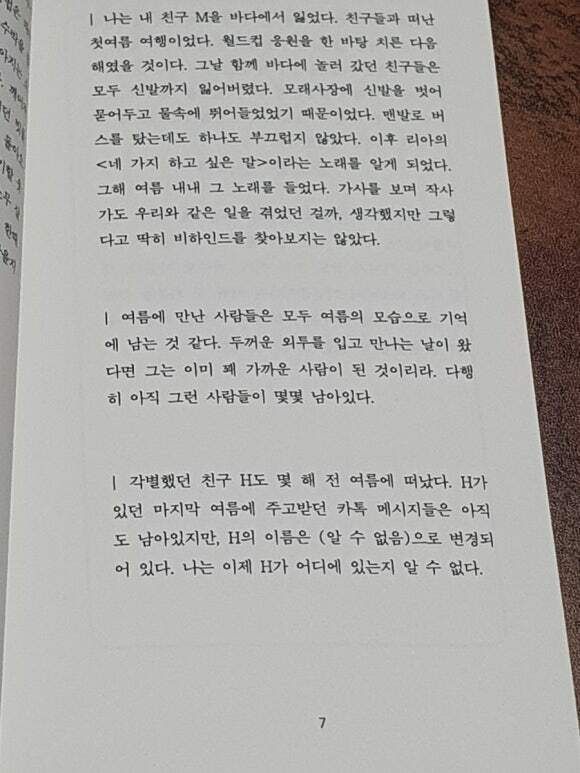 | 나는 내 친구 M을 바다에서 잃었다. 친구들과 떠난
첫여름 여행이었다. 월드컵 응원을 한 바탕 치른 다음
해였을 것이다. 그날 함께 바다에 놀러 갔던 친구들은
모두 신발까지 잃어버렸다. 모래사장에 신발을 벗어
묻어두고 물속에 뛰어들었었기 때문이었다. 맨발로 버
스를 탔는데도 하나도 부끄럽지 않았다. 이후 리아의
<네 가지 하고 싶은 말>이라는 노래를 알게 되었다.
그해 여름 내내 그 노래를 들었다. 가사를 보며 작사
가도 우리와 같은 일을 겪었던 걸까, 생각했지만 그렇
다고 딱히 비하인드를 찾아보지는 않았다.
| 여름에 만난 사람들은 모두 여름의 모습으로 기억
에 남는 것 같다. 두꺼운 외투를 입고 만나는 날이 왔
다면 그는 이미 꽤 가까운 사람이 된 것이리라. 다행
히 아직 그런 사람들이 몇몇 남아있다.
| 각별했던 친구 H도 몇 해 전 여름에 떠났다. H가
있던 마지막 여름에 주고받던 카톡 메시지들은 아직
도 남아있지만, H의 이름은 (알 수 없음)으로 변경되
어 있다. 나는 이제 H가 어디에 있는지 알 수 없다.
7